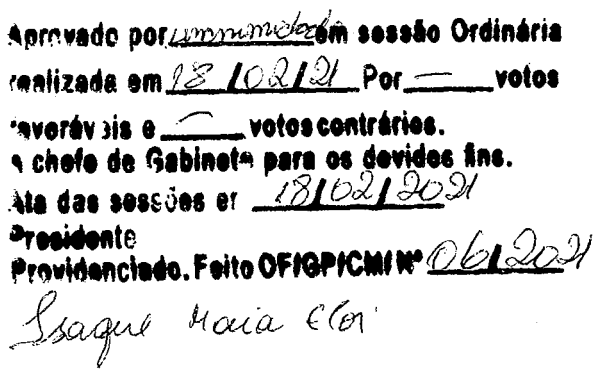 Aprovado por unanimidade em sessão Ordinária
realizada em 18/02/21 Por — votos
favoráveis e — votos contrários.
A chefe de Gabinete para os devidos fins.
Ala das sessões em 18/02/2021
Presidente
Providenciado. Feito OF/GP/CMI Nº 06/2021
Isaque Maia Eloi